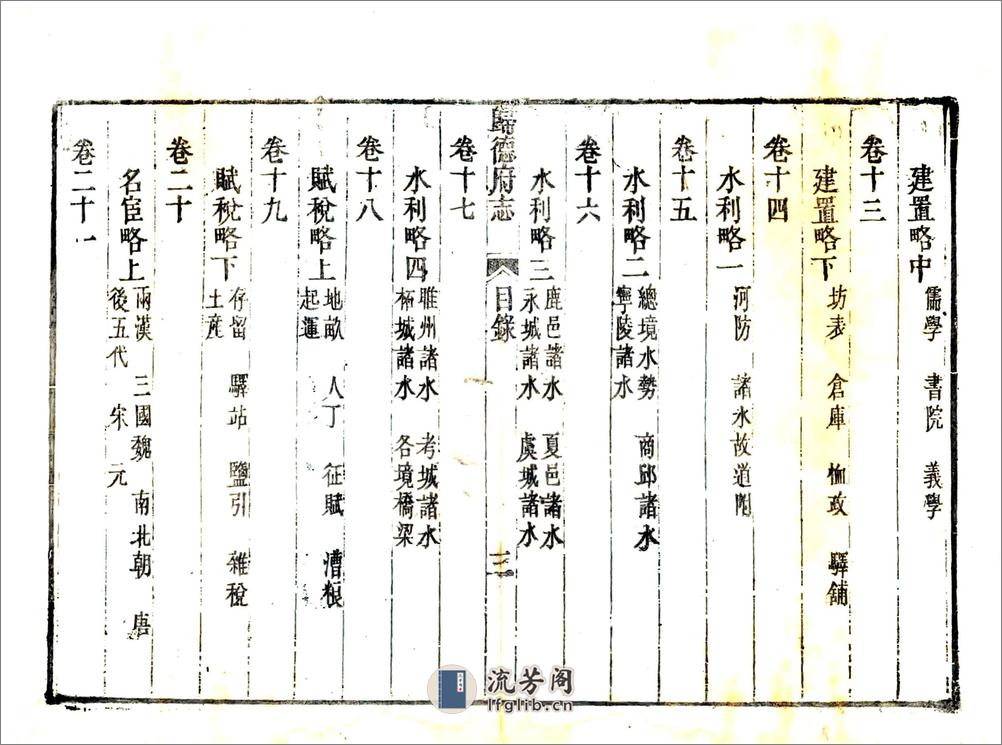 建置略中 儒學 書院 義學
卷十三
建置略下 坊表 倉庫 恤政 驛舖
卷十四
水利略一 河防 諸水故道附
卷十五
水利略二 總境水勢 商邱諸水
寧陵諸水
卷十六
水利略三 鹿邑諸水 夏邑諸水
永城諸水 虞城諸水
歸德府志 目錄 三
卷十七
水利略四 睢州諸水 考城諸水
柘城諸水 各境橋梁
卷十八
賦稅略上 地畝 人丁 征賦 漕粮
起運
卷十九
賦稅略下 存留 驛站 鹽引 雜稅
土產
卷二十
名宦略上 兩漢 三國魏 南北朝 唐
後五代 宋 元
卷二十一
流芳阁
lfglib.cn